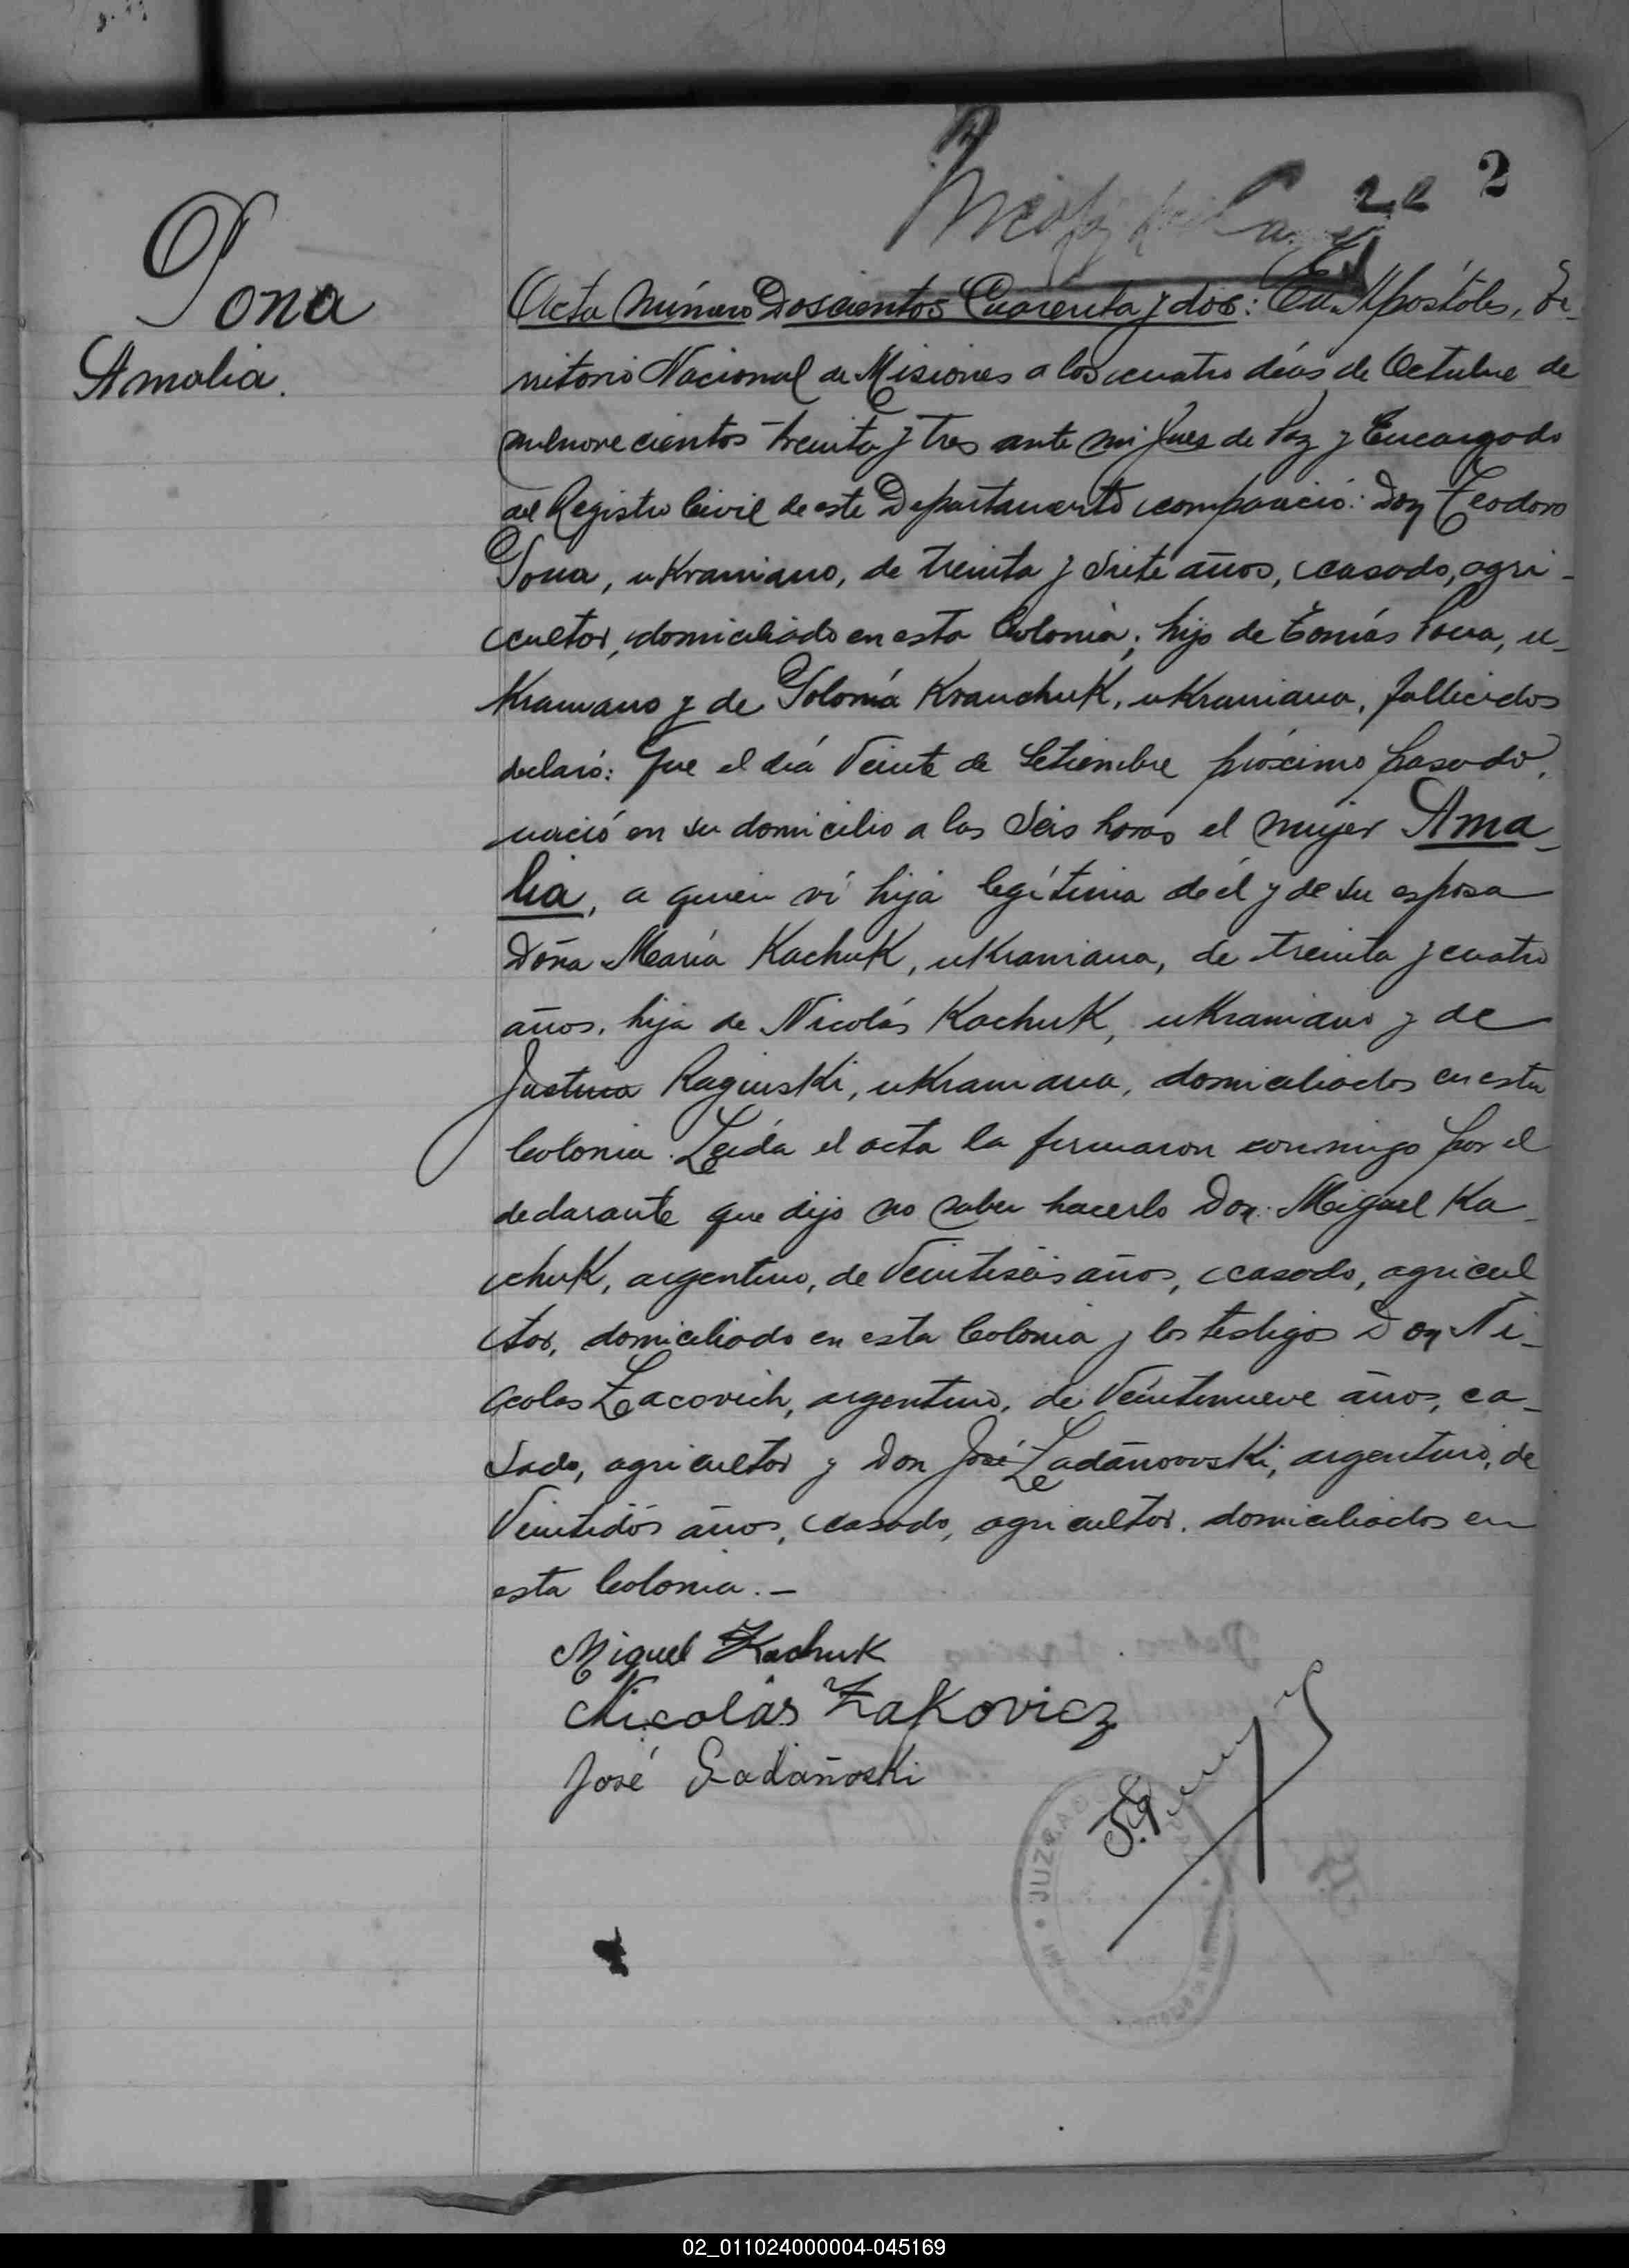 2
22
Pona
Amalia.
Acta Número Doscientos Cuarenta y dos: En Apóstoles, Te-
rritorio Nacional de Misiones a los cuatro días de Octubre de
mil novecientos treinta y tres ante mi Juez de Paz y Encargado
del Registro Civil de este Departamento compareció: Don Teodoro
Pona, ukraniano, de treinta y siete años, casado, agri-
cultor, domiciliado en esta Colonia; hijo de Tomás Pona, u-
kraniano y de Solomía Kravchuk, ukraniana, fallecidos
declaró: Que el día Veinte de Setiembre próximo pasado,
nació en su domicilio a las Seis horas el mujer Ama-
lia, a quien ví hija legítima de él y de su esposa
Doña María Kachuk, ukraniana, de treinta y cuatro
años, hija de Nicolás Kachuk, ukraniano y de
Justina Raginski, ukraniana, domiciliados en esta
Colonia. Leída el acta la firmaron conmigo por el
declarante que dijo no saber hacerlo Don Miguel Ka-
chuk, argentino, de Veintiseis años, casado, agricul
tor, domiciliado en esta Colonia y los testigos Don Ni-
colas Zacovich, argentino, de Veintinueve años, ca-
sado, agricultor y Don José Zadañovski, argentino, de
Veintidós años, casado, agricultor, domiciliados en
esta Colonia.-
Miguel Kachuk
Nicolás Zakovicz
José Sadañoski
JUZGADO
02_011024000004-045169